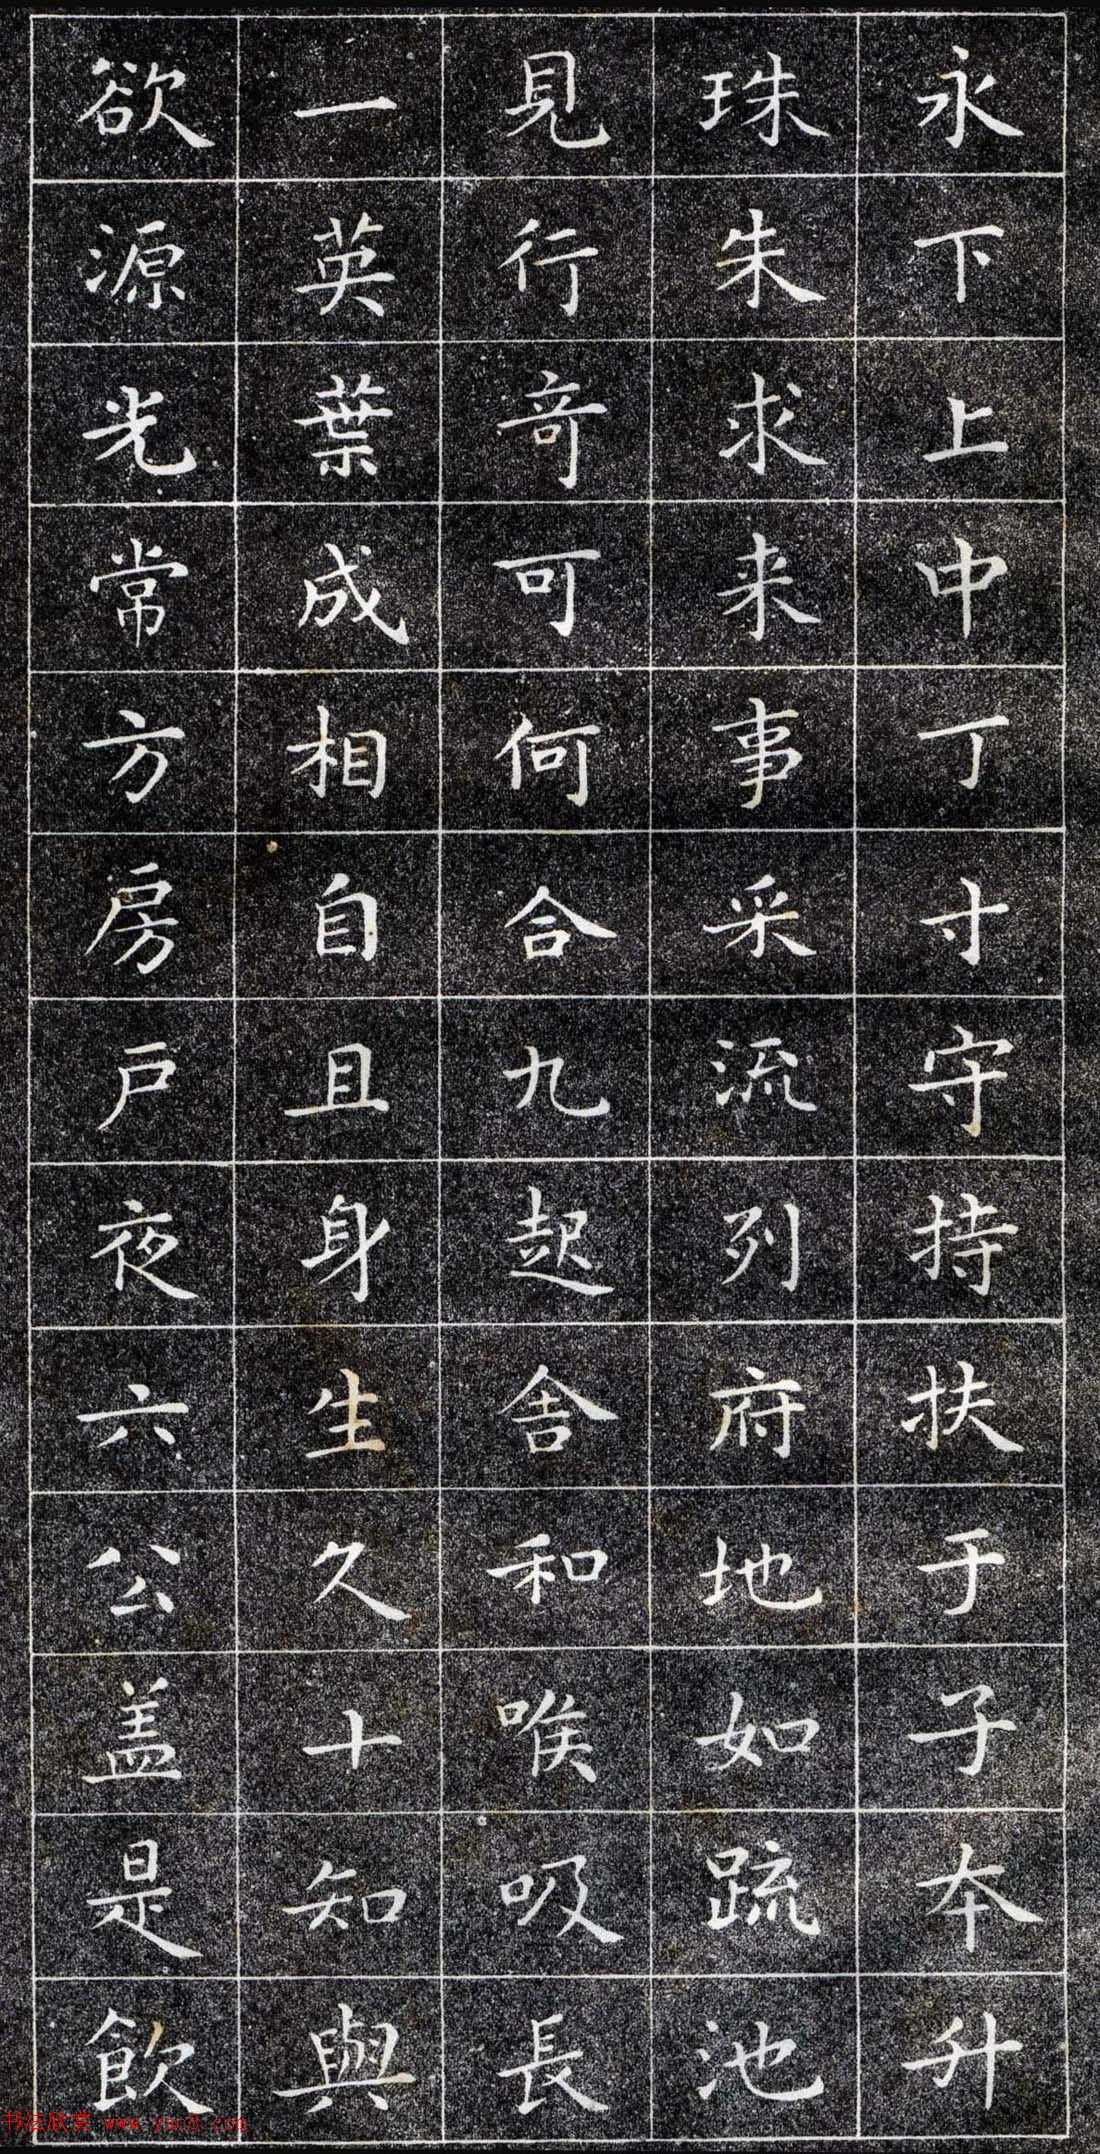 永下上中丁寸守持扶于子本升
珠朱求来事采流列府地如疏池
見行奇可何合九起舍和喉吸長
一英葉成相自且身生久十知與
欲源光常方房戶夜六公盖是飲
书法欣赏 www.yac8.com